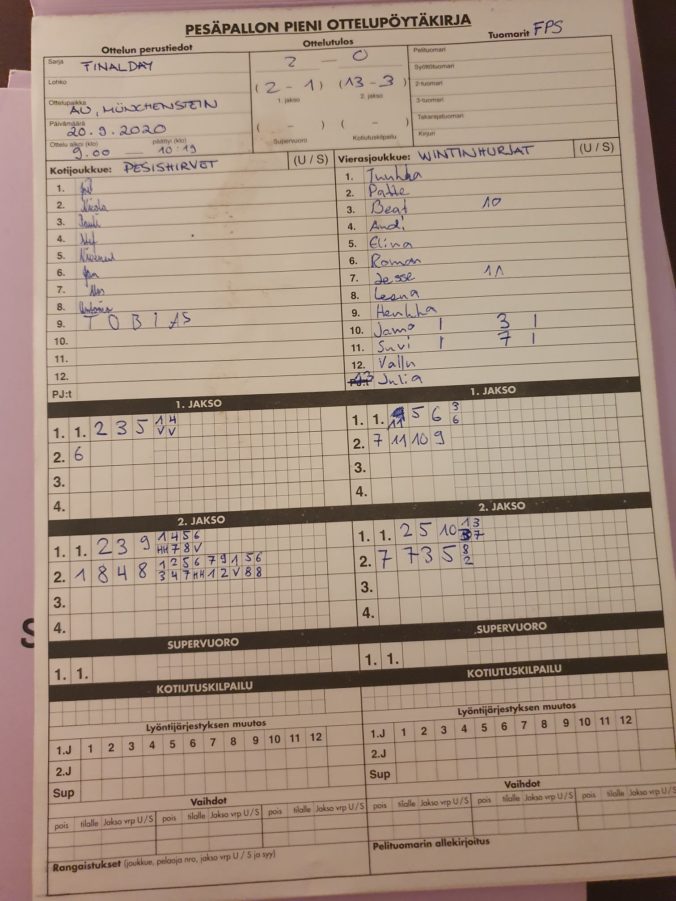 PESÄPALLON PIENI OTTELUPÖYTÄKIRJA
Ottelun perustiedot
Sarja FINALDAY
Lohko
Ottelupaikka AU, MÜNCHENSTEIN
Päivämäärä 20.9.2020
Ottelu alkoi (klo) 9.00 päättyi (klo) 10:19
Ottelutulos
2 - 0
(2 - 1) (13 - 3)
1. jakso 2. jakso
( - ) ( - )
Supervuoro Kotiutuskilpailu
Tuomarit FPS
Pelituomari
Syöttötuomari
2-tuomari
3-tuomari
Takarajatuomari
Kirjuri
Kotijoukkue: PESISHIRVET (U / S)
1.
2. Nicola
3.
4.
5.
6. Jan
7.
8.
9. TOBIAS
10.
11.
12.
PJ:t
Vierasjoukkue: WINTINHURJAT (U / S)
1. Juuhka
2. Patte
3. Beat 10
4. Andi
5. Elina
6. Roman
7. Jesse 11
8. Leena
9. Henkka
10. Jamo 1 3 1
11. Suvi 1 7 1
12. Vallu
13 Julia
1. JAKSO
1. 1. 2 3 5 1 4
V V
2. 6
3.
4.
1. JAKSO
1. 1. 11 5 6 3
6
2. 7 11 10 9
3.
4.
2. JAKSO
1. 1. 2 3 9 1 4 5 6
HH 7 8 V
2. 1 8 4 8 1 2 5 6 7 9 1 5 6
3 4 7 HH 1 2 V 8 8
3.
4.
2. JAKSO
1. 1. 2 5 10 1 3
3 7
2. 7 7 3 5 8
2
3.
4.
SUPERVUORO
1. 1.
SUPERVUORO
1. 1.
KOTIUTUSKILPAILU
KOTIUTUSKILPAILU
Lyöntijärjestyksen muutos
1.J 1 2 3 4 5 6 7 8 9 10 11 12
2.J
Sup
Lyöntijärjestyksen muutos
1.J 1 2 3 4 5 6 7 8 9 10 11 12
2.J
Sup
Vaihdot
pois tilalle Jakso vrp U / S pois tilalle Jakso vrp U / S pois tilalle Jakso vrp U / S
Vaihdot
pois tilalle Jakso vrp U / S pois tilalle Jakso vrp U / S pois tilalle Jakso vrp U / S
Rangaistukset (joukkue, pelaaja nro, jakso vrp U / S ja syy)
Pelituomarin allekirjoitus